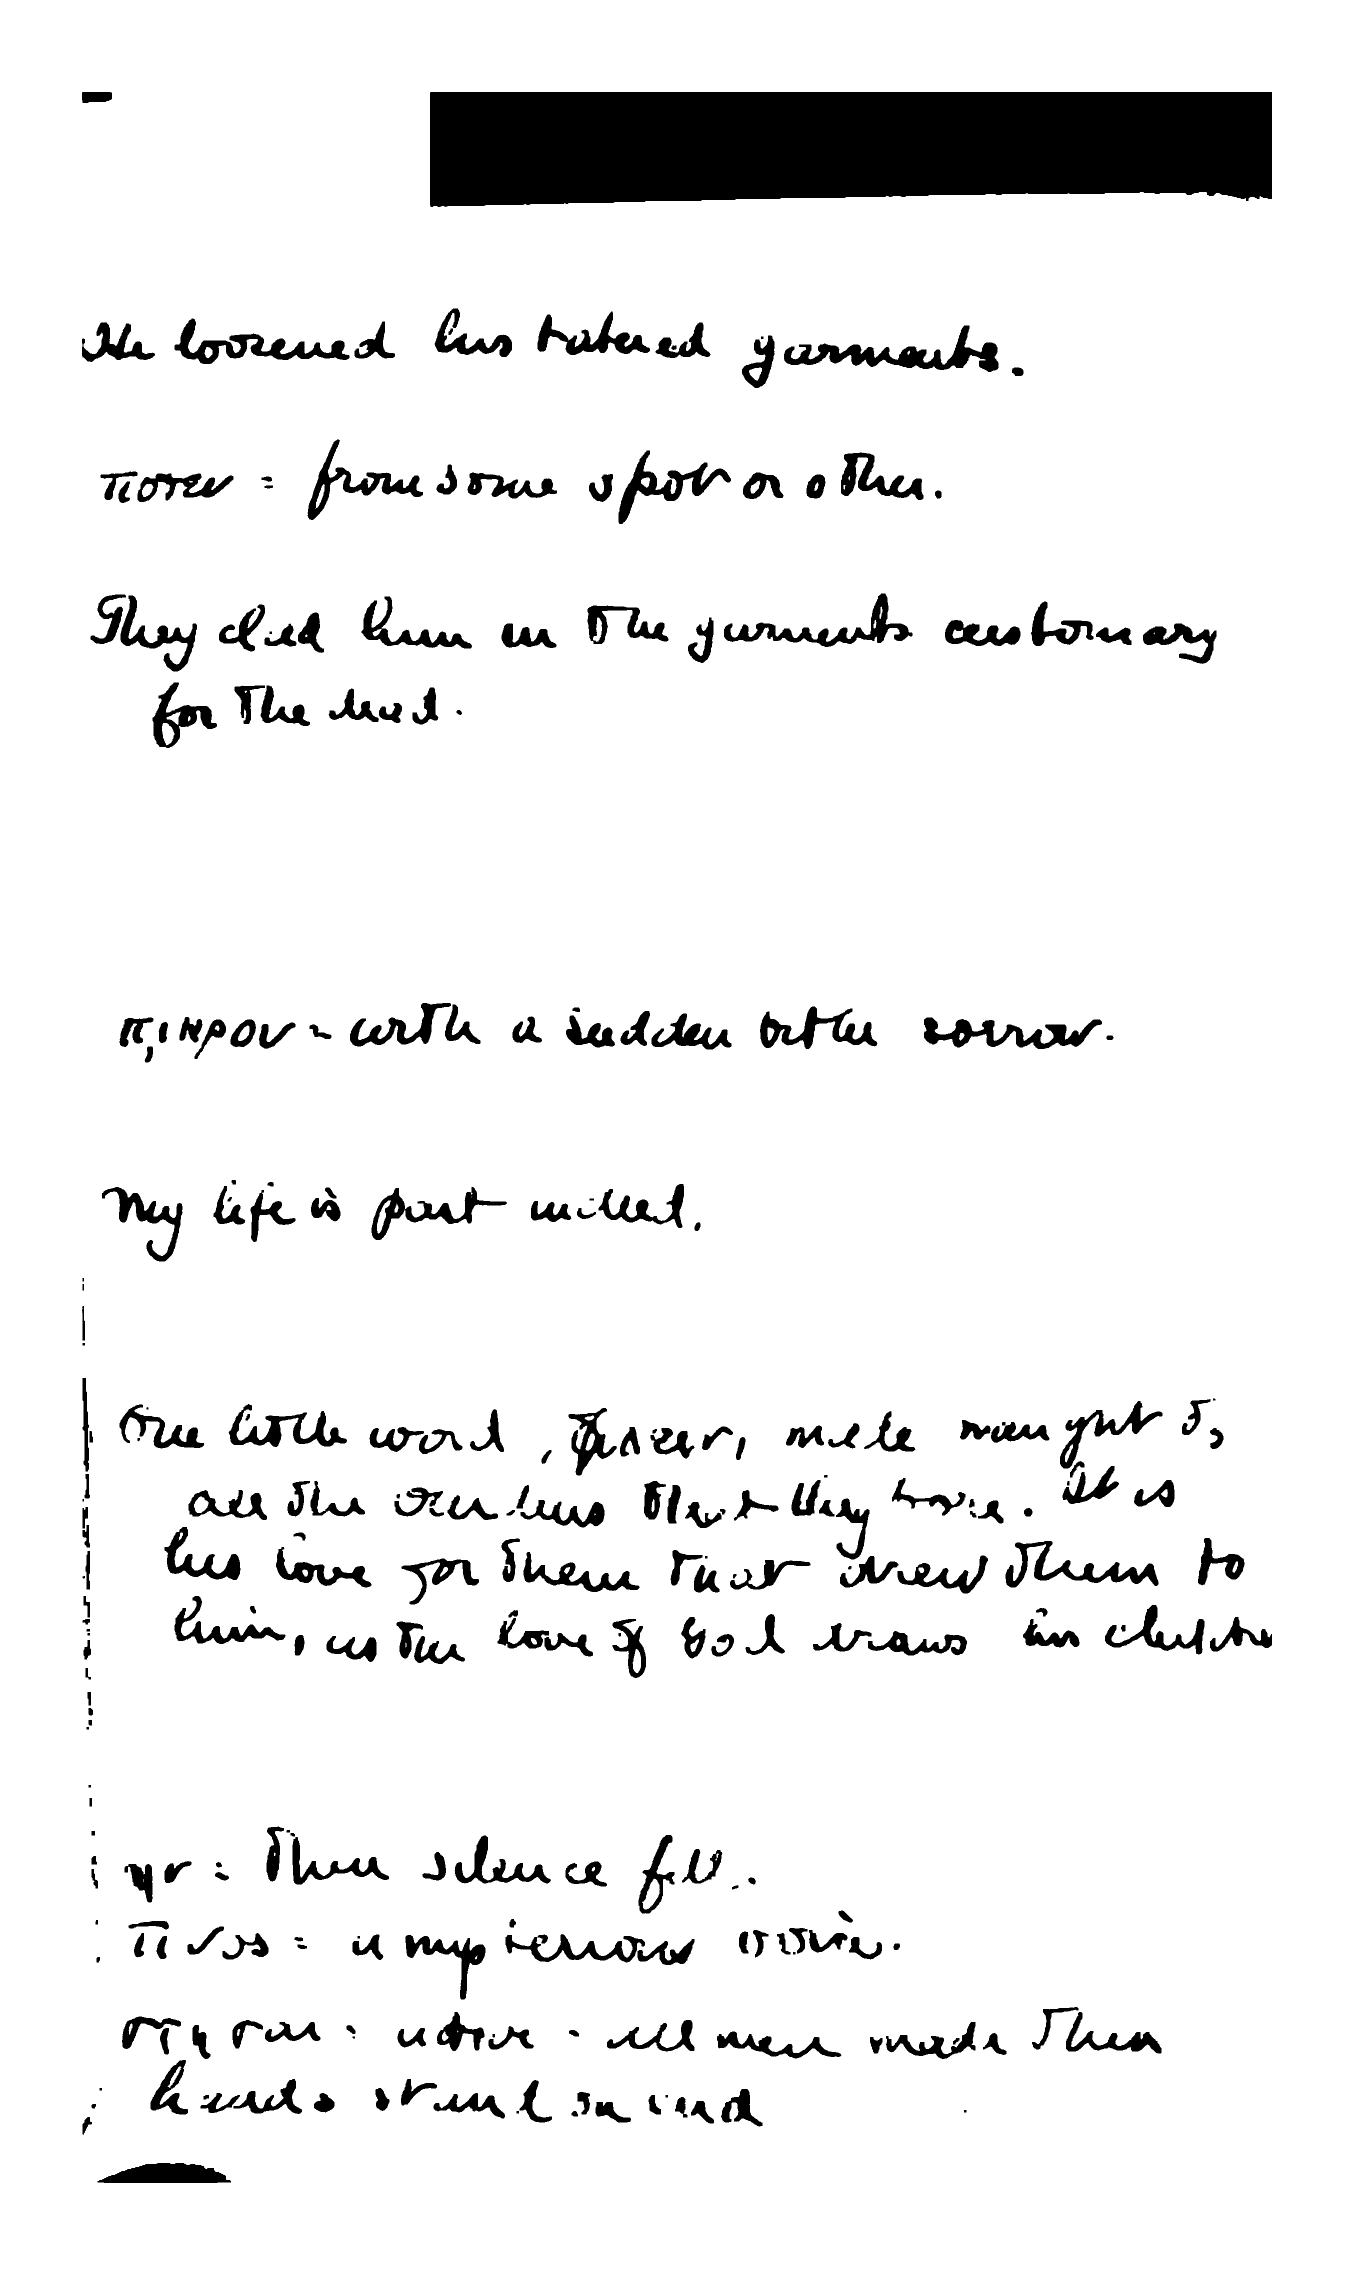 He loosened his tattered garments.
ποτεν = from some spot or other.
They clad him in the garments customary
for the dead.
πικρον = with a sudden bitter sorrow.
My life is past
One little word, φιλειν, makes naught of
all the that they bore. It is
his love for them that drew them to
him, as the love of God draws his children
ην = Then silence fell.
τινος = a mysterious noise.
στησαι = active = all men made their
heads stand on end